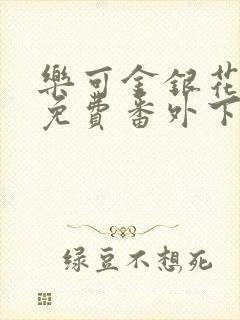 樂可金銀花
免費番外下
绿豆不想死